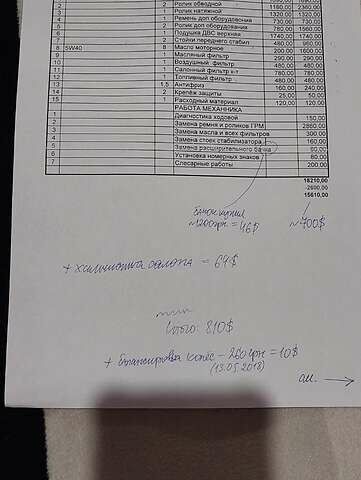 2 Ролик обводной 1180,00 2360,00
3 1 Ролик натяжной 1320,00 1320,00
4 1 Ремень доп оборудования 730,00 730,00
5 2 Ролик доп оборудования 780,00 1560,00
6 1 Подушка ДВС верхняя 1740,00 1740,00
7 2 Стойки переднего стабил 480,00 960,00
8 5W40 8 Масло моторное 200,00 1600,00
9 1 Масляный фильтр 290,00 290,00
10 1 Воздушный фильтр 480,00 480,00
11 1 Салонный фильтр к-т 780,00 780,00
12 1 Топливный фильтр 480,00 480,00
13 1,5 Антифриз 160,00 240,00
14 2 Крепёж защиты 25,00 50,00
15 1 Расходный материал 120,00 120,00
РАБОТА МЕХАНИКА
1 Диагностика ходовой 150,00
2 Замена ремня и роликов ГРМ 2860,00
3 Замена масла и всех фильтров 300,00
4 Замена стоек стабилизатора 160,00
5 Замена расширительного бачка 80,00
6 Установка номерных знаков 80,00
7 Слесарные работы 200,00
18210,00
-2600,00
15610,00
~1200грн = 46$
~700$
= 64$
Итого: 810$
+ Балансировка колес - 260грн = 10$
(13.05.2018)